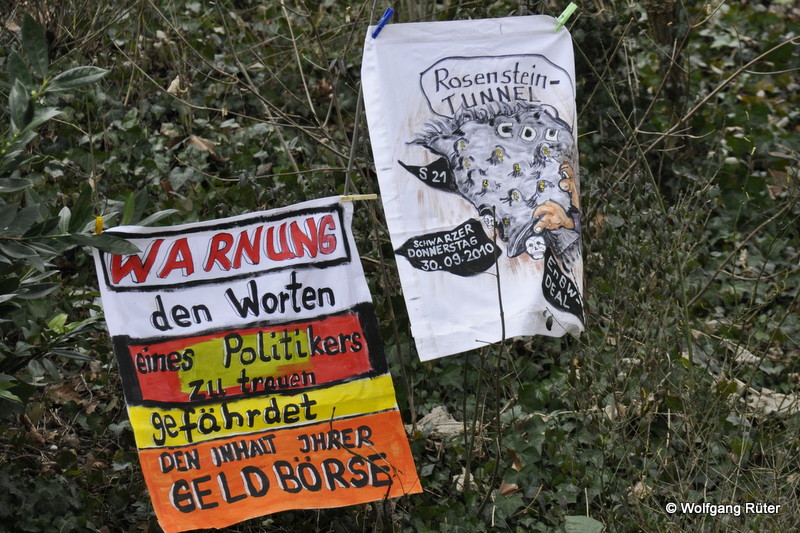 WARNUNG
den Worten
eines Politikers
zu trauen
gefährdet
DEN INHALT JHRER
GELDBÖRSE
Rosenstein-
TUNNEL
CDU
S 21
SCHWARZER
DONNERSTAG
30.09.2010
EnBW-
DEAL
© Wolfgang Rüter